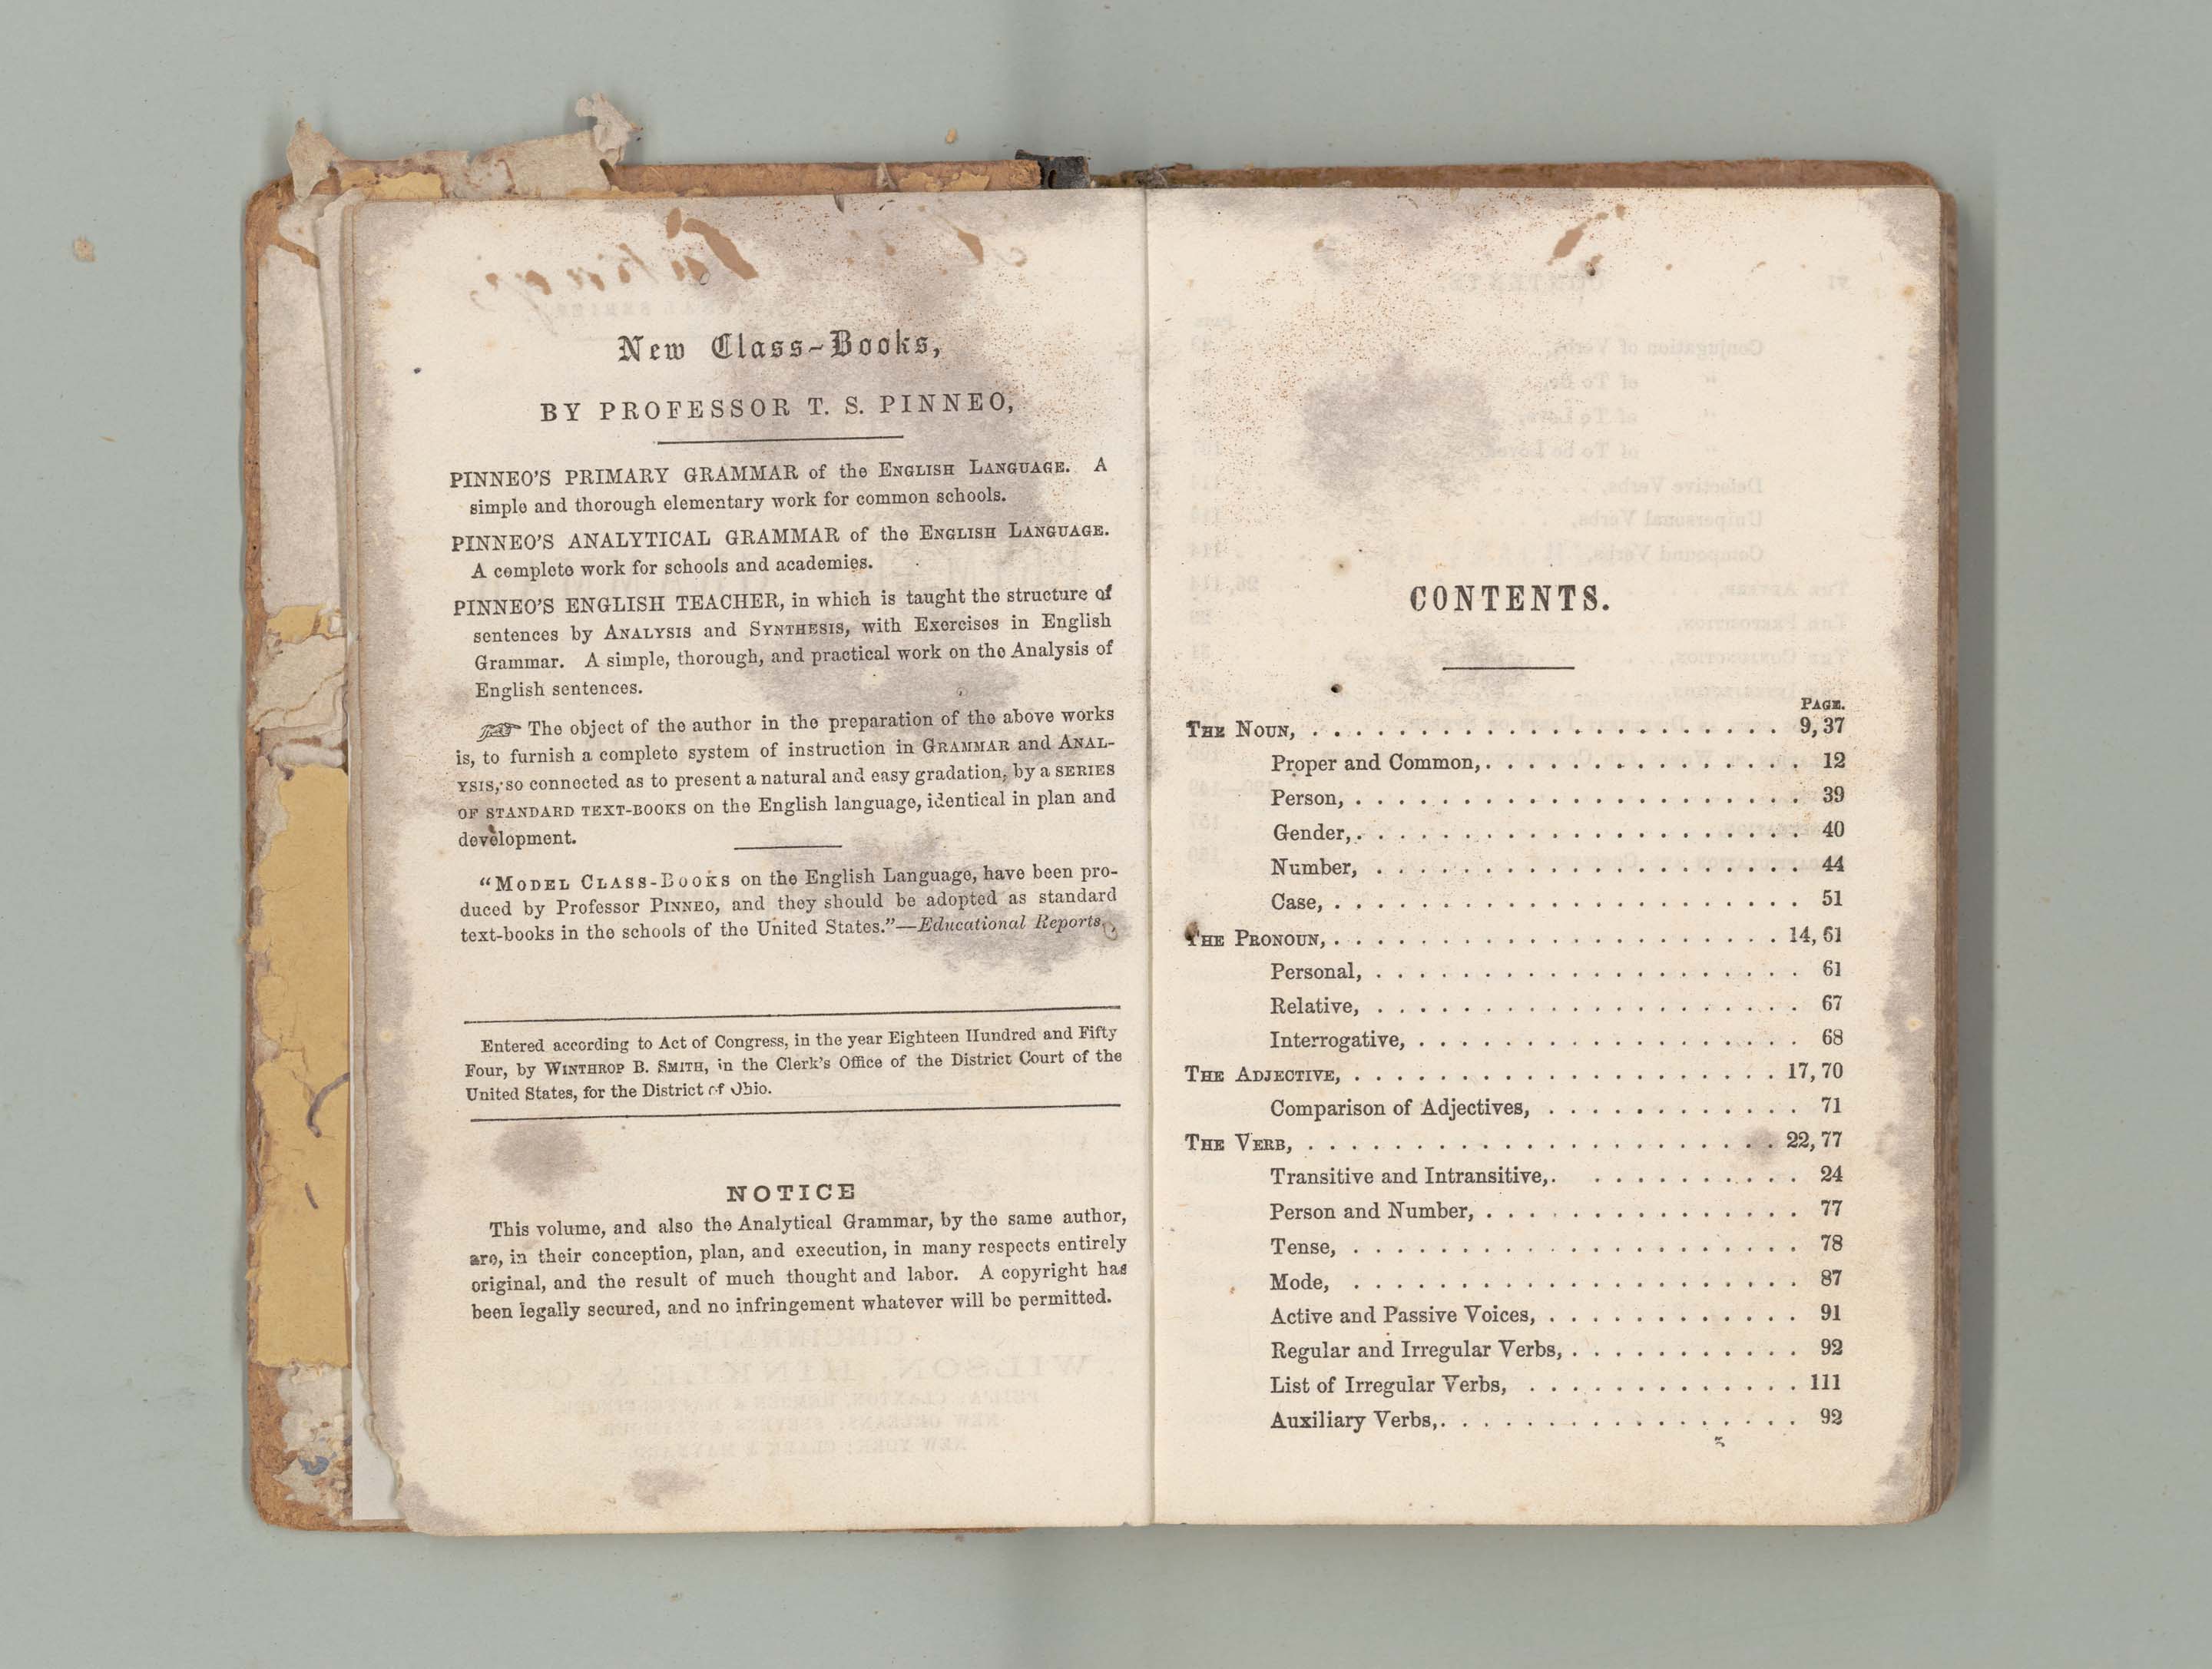 New Class-Books,
BY PROFESSOR T. S. PINNEO,
PINNEO'S PRIMARY GRAMMAR of the ENGLISH LANGUAGE. A
simple and thorough elementary work for common schools.
PINNEO'S ANALYTICAL GRAMMAR of the ENGLISH LANGUAGE.
A complete work for schools and academies.
PINNEO'S ENGLISH TEACHER, in which is taught the structure of
sentences by ANALYSIS and SYNTHESIS, with Exercises in English
Grammar. A simple, thorough, and practical work on the Analysis of
English sentences.
☞ The object of the author in the preparation of the above works
is, to furnish a complete system of instruction in GRAMMAR and ANAL-
YSIS, so connected as to present a natural and easy gradation, by a SERIES
OF STANDARD TEXT-BOOKS on the English language, identical in plan and
development.
"MODEL CLASS-BOOKS on the English Language, have been pro-
duced by Professor PINNEO, and they should be adopted as standard
text-books in the schools of the United States."—Educational Reports.
Entered according to Act of Congress, in the year Eighteen Hundred and Fifty
Four, by WINTHROP B. SMITH, in the Clerk's Office of the District Court of the
United States, for the District of Ohio.
NOTICE
This volume, and also the Analytical Grammar, by the same author,
are, in their conception, plan, and execution, in many respects entirely
original, and the result of much thought and labor. A copyright has
been legally secured, and no infringement whatever will be permitted.
CONTENTS.
PAGE.
THE NOUN, . . . . . . . . . . . . . . . . . . . . . . 9, 37
Proper and Common, . . . . . . . . . . . . . . . 12
Person, . . . . . . . . . . . . . . . . . . . . . 39
Gender, . . . . . . . . . . . . . . . . . . . . . 40
Number, . . . . . . . . . . . . . . . . . . . . 44
Case, . . . . . . . . . . . . . . . . . . . . . . 51
THE PRONOUN, . . . . . . . . . . . . . . . . . . . . . 14, 61
Personal, . . . . . . . . . . . . . . . . . . . . 61
Relative, . . . . . . . . . . . . . . . . . . . . 67
Interrogative, . . . . . . . . . . . . . . . . . . 68
THE ADJECTIVE, . . . . . . . . . . . . . . . . . . . . 17, 70
Comparison of Adjectives, . . . . . . . . . . . . 71
THE VERB, . . . . . . . . . . . . . . . . . . . . . . 22, 77
Transitive and Intransitive, . . . . . . . . . . . 24
Person and Number, . . . . . . . . . . . . . . . 77
Tense, . . . . . . . . . . . . . . . . . . . . . 78
Mode, . . . . . . . . . . . . . . . . . . . . . 87
Active and Passive Voices, . . . . . . . . . . . . 91
Regular and Irregular Verbs, . . . . . . . . . . . 92
List of Irregular Verbs, . . . . . . . . . . . . . 111
Auxiliary Verbs, . . . . . . . . . . . . . . . . . 92